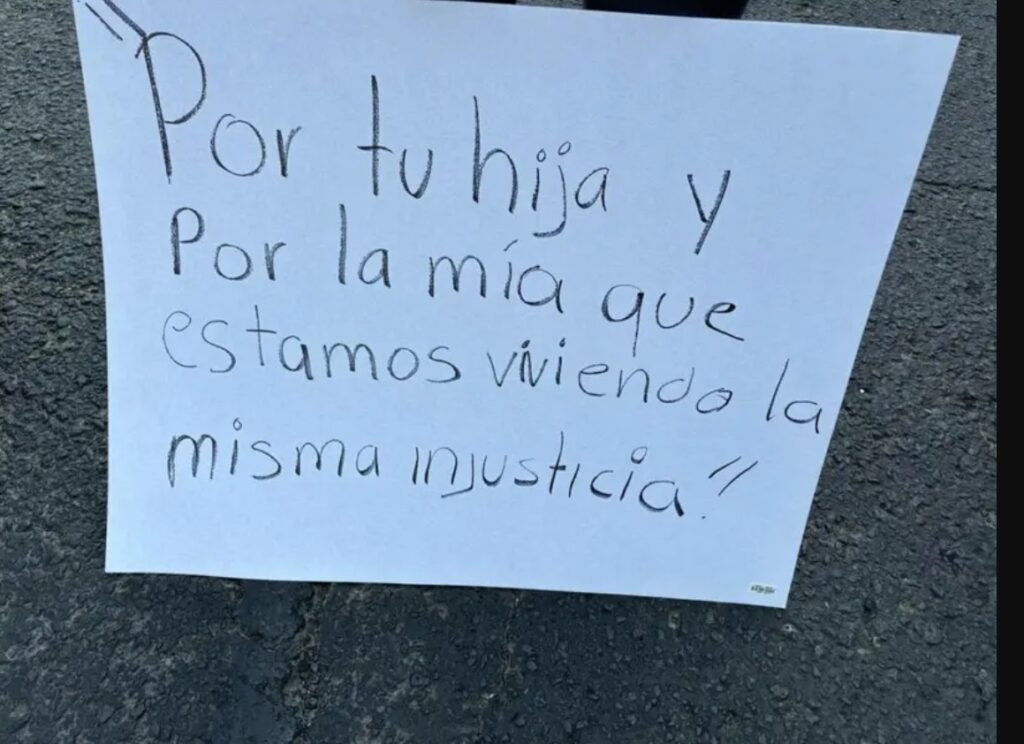 "Por tu hija y
Por la mía que
estamos viviendo la
misma injusticia."